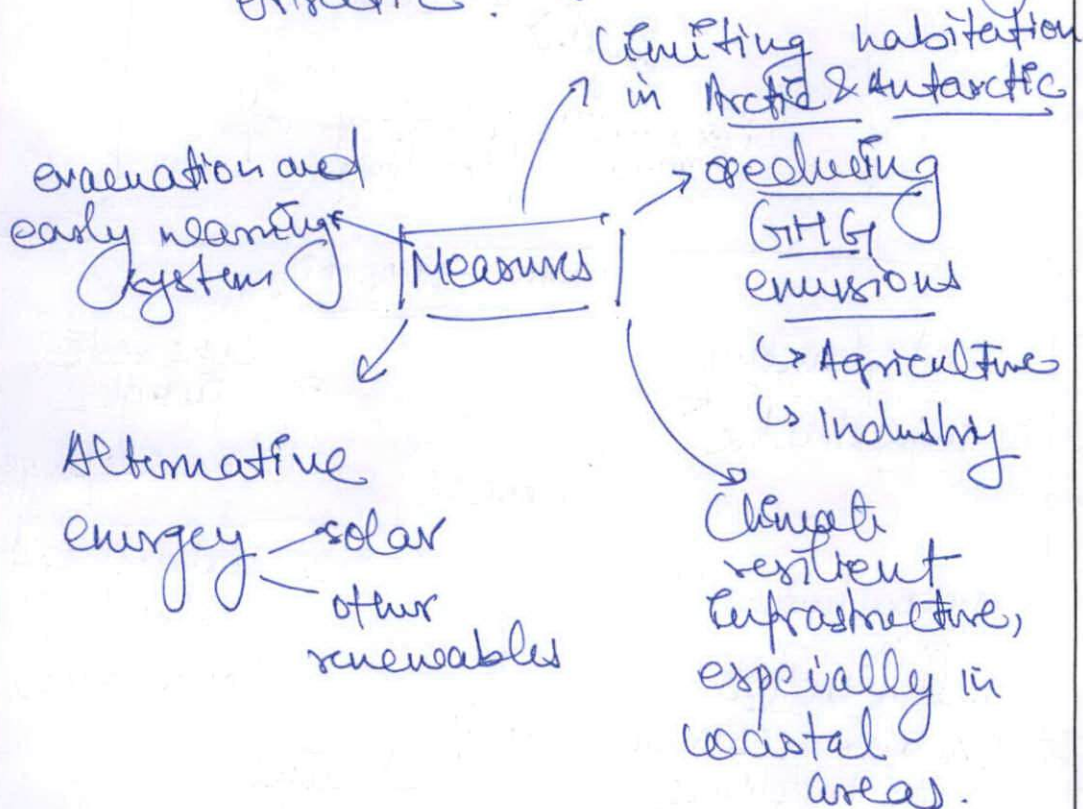 Limiting habitation
in Arctic & Antarctic
evacuation and
early warning
system
Measures
reducing
GHG
emissions
↳ Agriculture
↳ Industry
Alternative
energey
solar
other
renewables
Climate
resilient
infrastructure,
especially in
coastal
areas.